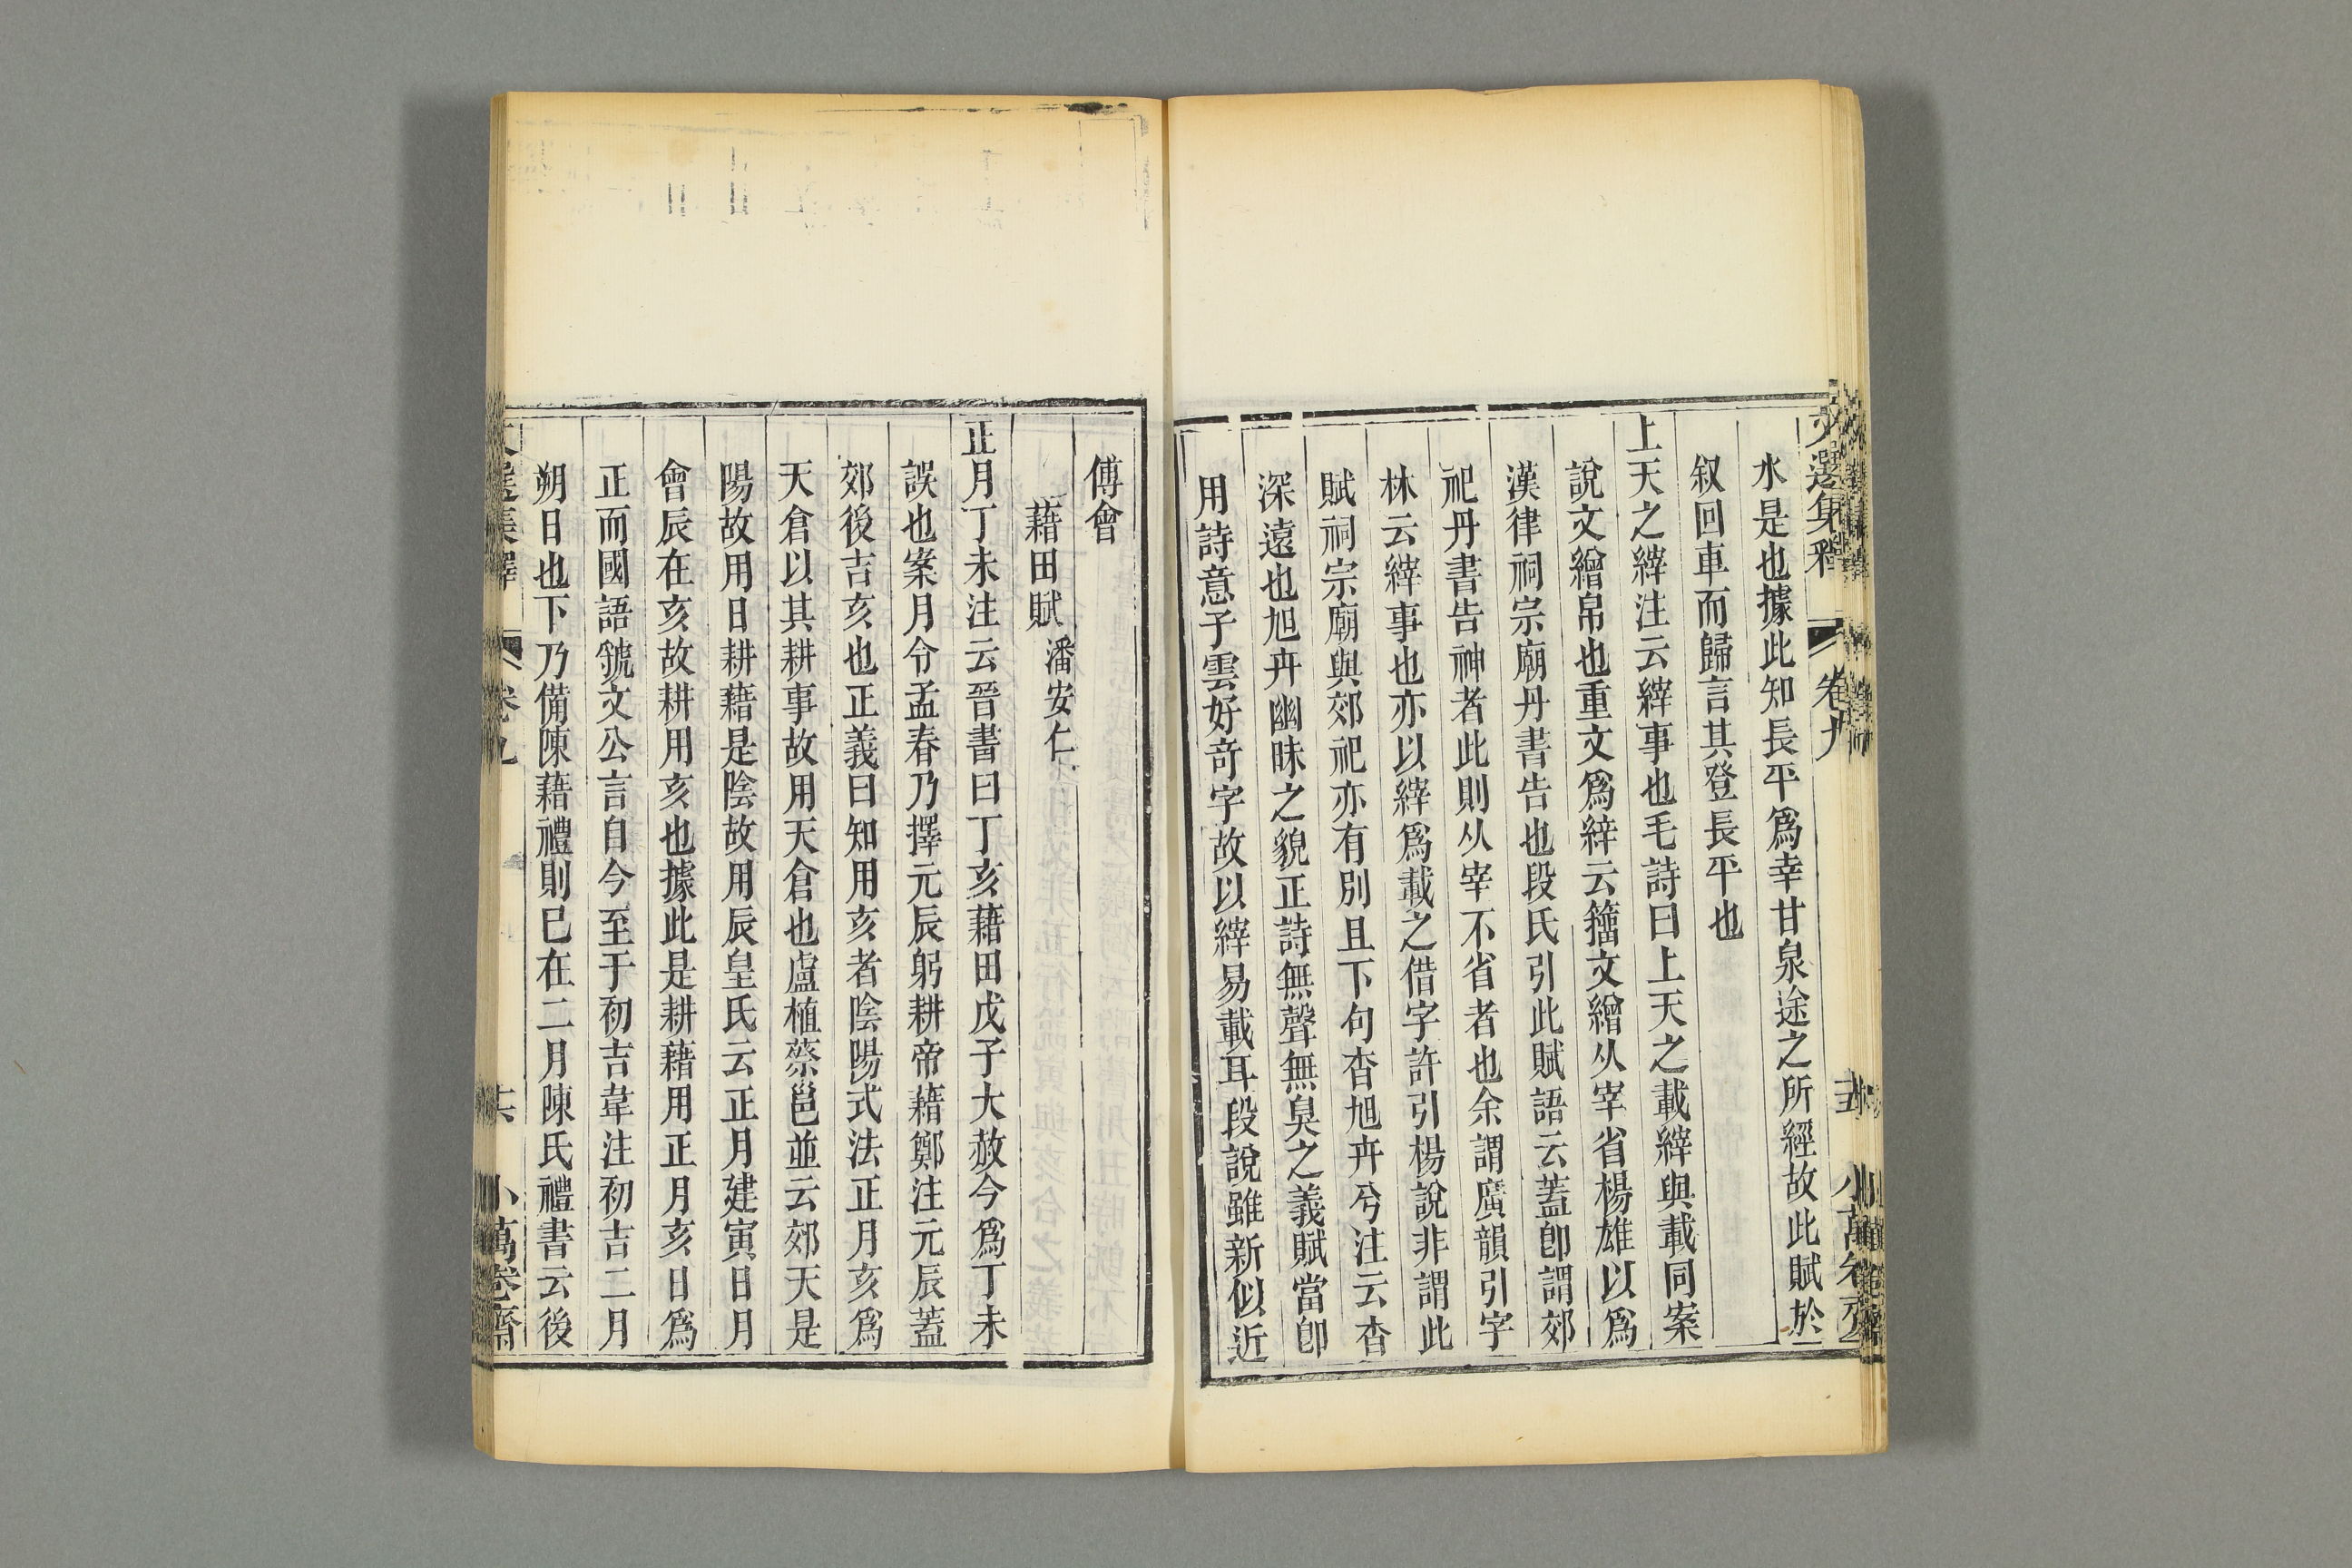 文選集釋 卷九 小萬卷齋
水是也據此知長平爲幸甘泉途之所經故此賦於
叙回車而歸言其登長平也
上天之縡注云縡事也毛詩曰上天之載縡與載同案
說文繒帛也重文爲縡云籒文繒从宰省楊雄以爲
漢律祠宗廟丹書告也段氏引此賦語云蓋卽謂郊
祀丹書告神者此則从宰不省者也余謂廣韻引字
林云縡事也亦以縡爲載之借字許引楊說非謂此
賦祠宗廟與郊祀亦有別且下句杳旭卉兮注云杳
深遠也旭卉幽昧之貌正詩無聲無臭之義賦當卽
用詩意子雲好奇字故以縡易載耳段說雖新似近
傅會
藉田賦 潘安仁
正月丁未注云晉書曰丁亥藉田戊子大赦今爲丁未
誤也案月令孟春乃擇元辰躬耕帝藉鄭注元辰蓋
郊後吉亥也正義曰知用亥者陰陽式法正月亥爲
天倉以其耕事故用天倉也盧植蔡邕並云郊天是
陽故用日耕藉是陰故用辰皇氏云正月建寅日月
會辰在亥故耕用亥也據此是耕藉用正月亥日爲
正而國語虢文公言自今至于初吉韋注初吉二月
朔日也下乃備陳藉禮則已在二月陳氏禮書云後
文選集釋 卷九 共 小萬卷齋